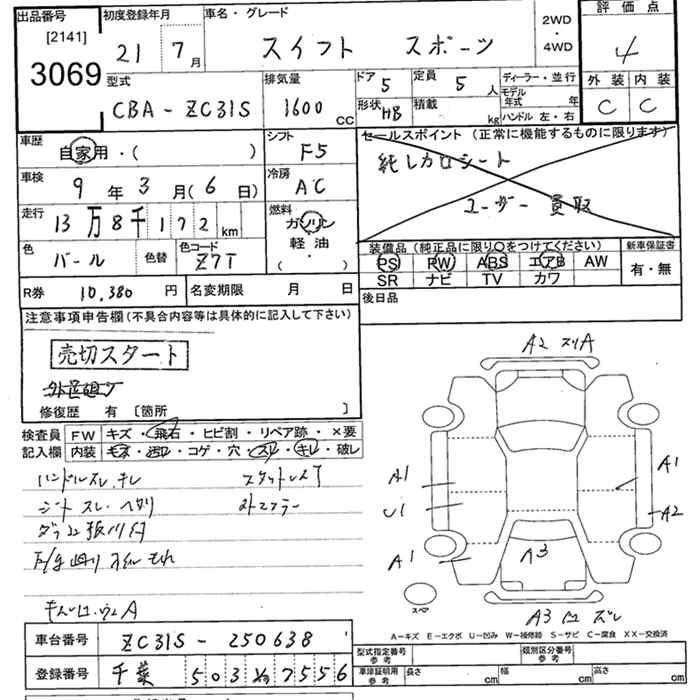 出品番号 初度登録年月 車名・グレード 2WD・4WD 評価点
[2141] 21 7月 スイフト スポーツ 4
3069
型式 排気量 ドア 5 定員 5人 ディーラー・並行 外装 内装
CBA-ZC31S 1600cc 形状 HB 積載 kg モデル年式 年 C C
ハンドル 左・右
車歴 自家用・( ) シフト F5 セールスポイント (正常に機能するものに限ります)
純レカロシート
車検 9年3月(6日) 冷房 AC ユーザー 買取
走行 13万8千172km 燃料 ガソリン
軽油
・
( )
色 パール 色替 色コード Z7T 装備品 (純正品に限り○をつけてください) 新車保証書
PS PW ABS エアB AW 有・無
SR ナビ TV カワ
R券 10,380円 名変期限 月 日 後日品
注意事項申告欄 (不具合内容等は具体的に記入して下さい)
売切スタート
修復歴 有 [箇所 ]
検査員 FW キズ・飛石・ヒビ割・リペア跡・×要
記入欄 内装 モネ・汚れ・コゲ・穴・スレ・キレ・破レ
ハンドルスレ,キレ
シート スレ・ヘタリ
A2 スリA
A1 A1
U1 A2
A1 A3
スペア
A3
A-キズ E-エクボ U-凹み W-補修跡 S-サビ C-腐食 XX-交換済
車台番号 ZC31S-250638 型式指定番号 参考 類別区分番号 参考
登録番号 千葉 503 7556 車庫証明用 参考 長さ cm 幅 cm 高さ cm